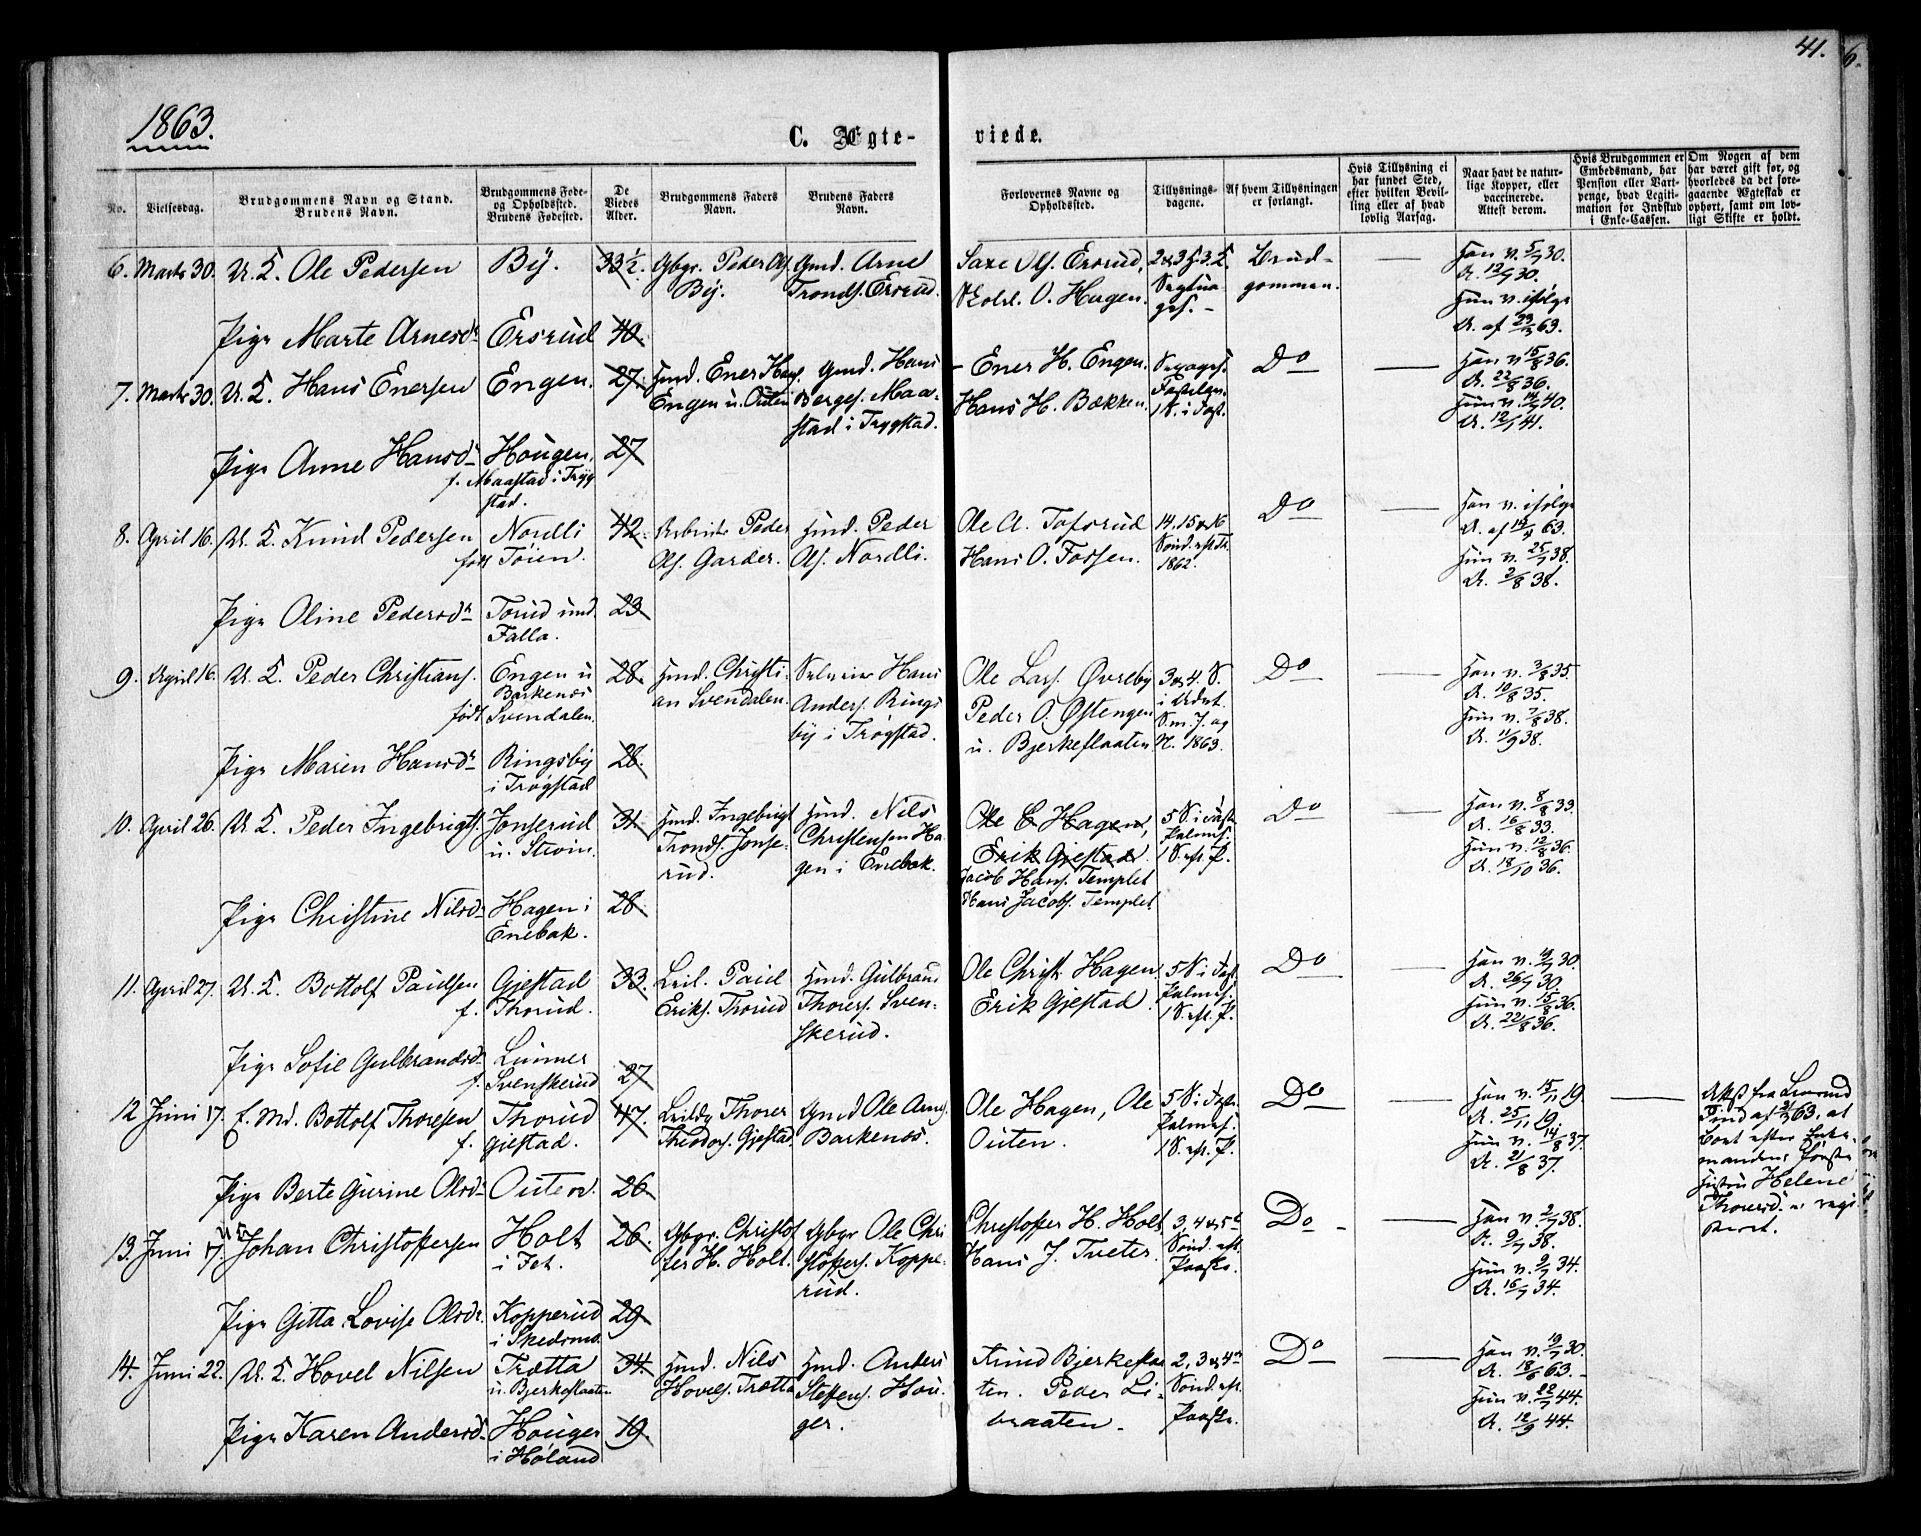 41.
6.
1863.
C. Ægte-
viede.
No.
Vielsesdag.
Brudgommens Navn og Stand.
Brudens Navn.
Brudgommens Føde-
og Opholdssted.
Brudens Fødested.
De
Viedes
Alder.
Brudgommens Faders
Navn.
Brudens Faders
Navn.
Forlovernes Navne og
Opholdssted.
Tillysnings-
dagene.
Af hvem Tillysningen
er forlangt.
Hvis Tillysning ei
har fundet Sted,
efter hvilken Bevil-
ling eller af hvad
lovlig Aarsag.
Naar havt de natur-
lige Kopper, eller
vaccinerede.
Attest derom.
Hvis Brudgommen er
Embedsmand, har
Pension eller Vart-
penge, hvad Legiti-
mation for Indskud
i Enke-Cassen.
Om Nogen af dem
har været gift før, og
hvorledes da det fore-
gaaende Ægteskab er
ophørt, samt om lov-
ligt Skifte er holdt.
6. Marts 30. U. K. Ole Pedersen
By.
33½.
Gbgr. Peder Ols.
By.
Gmd. Arne
Tronds. Ersrud.
Saxe Ols. Ersrud,
O. Hagen.
2 & 3 S.
Brud-
gommen.
Han v. 5/7 30.
A. 12/7 30.
Hun v. ifølge
A. af 29/3 63.
Pige Marte Arnesdr
Ersrud
40.
7. Marts 30. U. K. Hans Enersen
Engen.
27.
Hmd. Ener Hans.
Engen u. Outen
Gmd. Hans
Berges. Maa-
stad i Trygstad.
Ener H. Engen.
Hans H. Bækken.
Sexages.
Fastelav.
1 S. i Fast.
Do
Han v. 15/8 36.
A. 22/8 36.
Hun v. 14/7 40.
A. 12/7 41.
Pige Anne Hansdr
Hougen,
f. Maastad i Tryg-
stad.
27
8. April 16. U. K. Knud Pedersen
Nordli
født Tøien.
42.
Arbeider Peder
Ols. Garder.
Hmd. Peder
Ols. Nordli.
Ole A. Toforud
Hans O. Fossen.
14. 15 & 16
Sønd. eft. Tr.
1862.
Do
Han v. ifølge
A. af 14/4 63.
Hun v. 25/7 38.
A. 2/8 38.
Pige Oline Pedersdr
Torud und.
Falla.
23
9. April 16. U. K. Peder Christians.
Engen u
Barkenæs
født Svendalen.
28.
Hmd. Christi-
an Svendalen.
Selveier Hans
Anders. Rings
by i Trøgstad.
Ole Lars. Øvreby
Peder O. Østengen
u. Bjerkeflaaten
3 & 4. S.
i Advt.
S. m. J. og
N. 1863.
Do
Han v. 3/8 35.
A. 10/8 35.
Hun v. 7/8 38.
A. 11/9 38.
Pige Maren Hansdr
Ringsby
i Trøgstad
28.
10. April 26. U. K. Peder Ingebrigts.
Jonserud
u. Stein.
31.
Hmd. Ingebrigt
Tronds. Jonse-
rud.
Hmd. Nils
Christensen Ha-
gen i Enebak.
Ole C Hagen,
Erik Gjestad
Jacob Hans. Templet
Hans Jacobs. Templet
5 S. i Faste
Palmes.
1 S. eft. P.
Do
Han v. 8/8 33.
A. 16/8 33.
Hun v. 12/8 36.
A. 18/10 36.
Pige Christine Nilsdr
Hagen i
Enebak.
28.
11. April 27. U. K. Bottolf Paulsen
Gjestad
f. Thorud.
33.
Leil. Paul
Eriks. Thorud
Hmd. Gulbrand
Thores. Sven-
skerud.
Ole Christ. Hagen
Erik Gjestad
5 S. i Fast.
Palmes.
1 S. eft. P.
Do
Han v. 19/7 30.
A. 26/7 30.
Hun v. 15/8 36.
A. 22/8 36.
Pige Sofie Gulbrandsdr
Lunner
f. Svenskerud
27
12 Juni 17. E. Md. Bottolf Thoresen
Thorud
f. Gjestad.
47.
Leildg Thorer
Theodors. Gjestad.
Gmd Ole Arns.
Barkenæs.
Ole Hagen, Ole
Outen.
5 S i Faste.
Palmes.
1 S. eft. P.
Do
Han v. 15/11 19.
A. 25/11 19.
Hun v. 14/8 37.
A. 21/8 37.
Attest fra Lensmand
Tund af 63, at
Boet efter Enke-
mandens første
Hustru Helene
Thoresd. er regi-
streret.
Pige Berte Gurine Olsdr
Outen.
26.
13. Juni 17. U. K. Johan Christoffersen
Holt
i Fet.
26.
Gbgr. Christof
fer H. Holt.
Gbgr Ole Chri
stoffers. Koppe-
rud.
Christoffer H. Holt
Hans J. Tveter.
3, 4 & 5te
Sønd. eft.
Paaske.
Do
Han v. 2/7 38.
A. 9/7 38.
Hun v. 9/7 34.
A. 16/7 34.
Pige Gitta Lovise Olsdr.
Kopperud
i Skedsmo
29
14. Juni 22. U. K. Hovel Nilsen
Trætta
u. Bjerkeflaaten
34.
Hmd. Nils
Hovels. Trætta
Hmd. Anders
Steffens. Hou-
ger.
Knud Bjerkeflaa
ten. Peder Li-
braaten.
2, 3 & 4de
Sønd. eft.
Paaske.
Do
Han v. 19/7 30.
A. 18/6 63.
Hun v. 22/7 44.
A. 12/9 44.
Pige Karen Andersdr
Houger
i Høland
19.